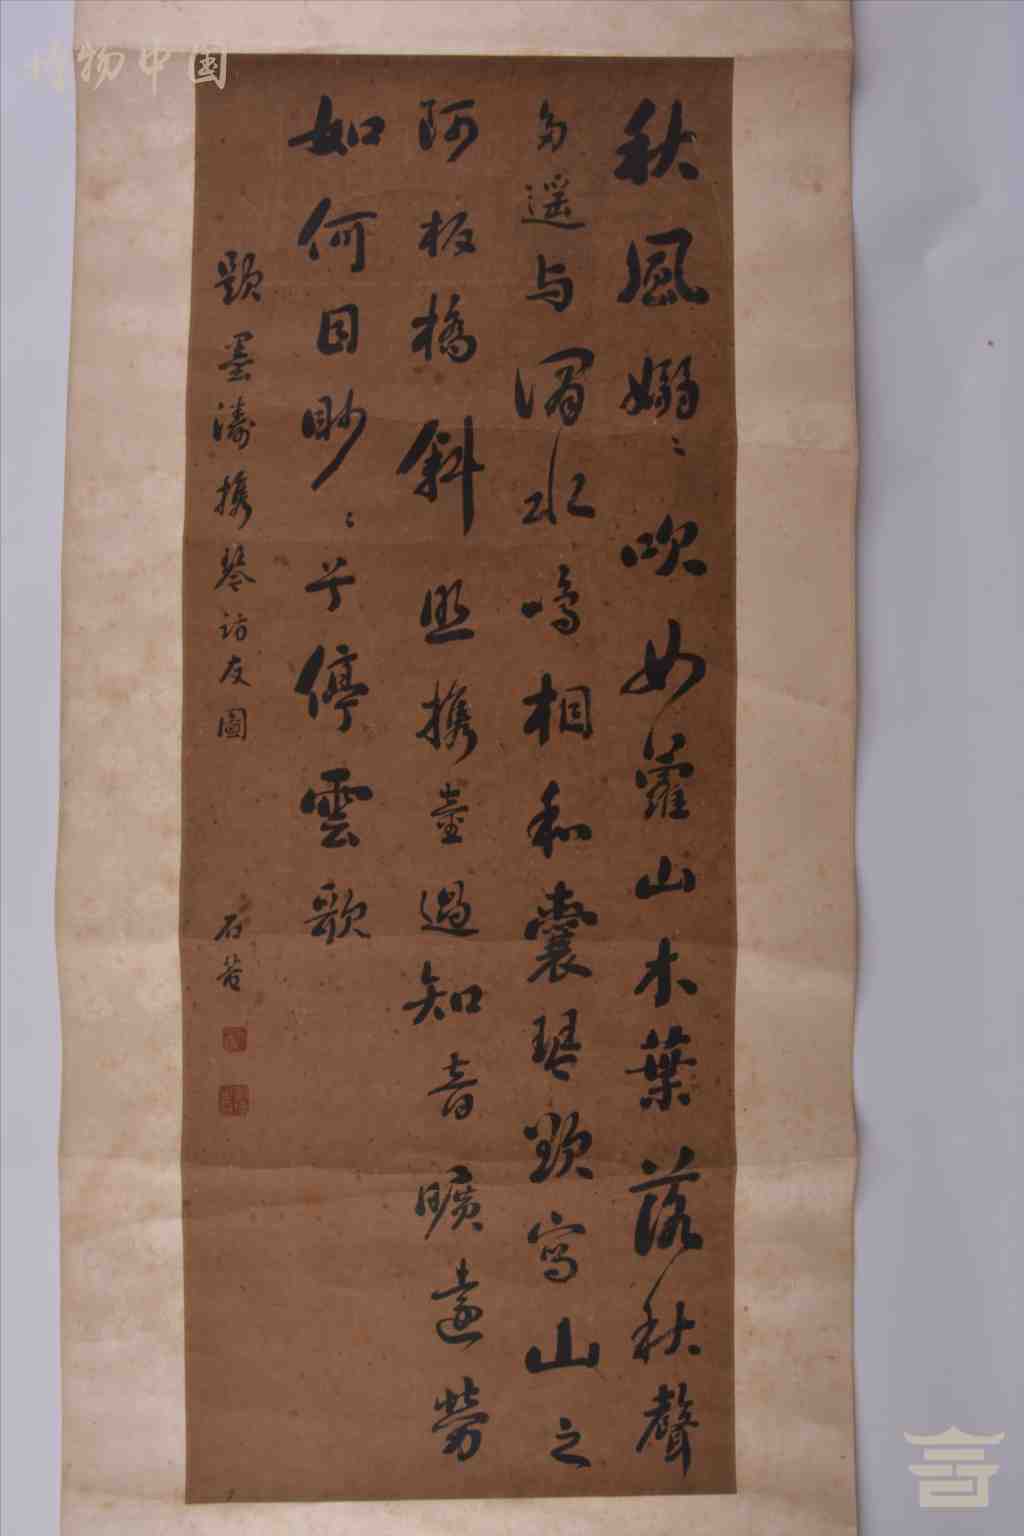 秋風嫋〻吹女蘿山木葉落秋聲
多遥與澗水鳴相和囊琴欵寫山之
阿板橋斜照攜壺過知音曠遠勞
如何目眇〻兮停雲歌
題墨濤攜琴訪友圖
石菴
博物中国